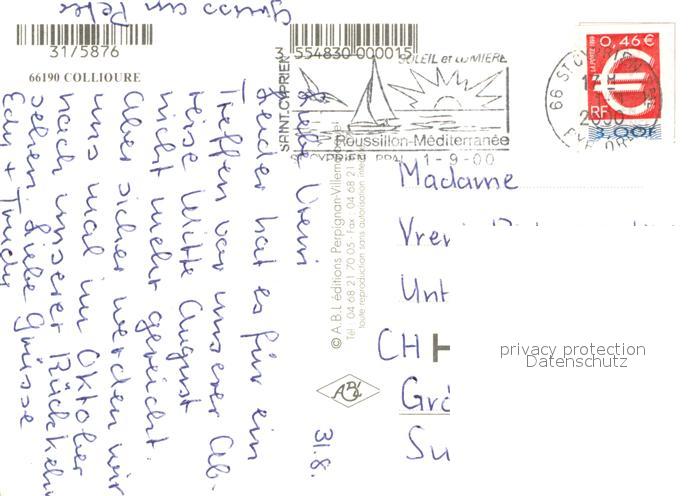 Gruss an Peter
31/5876
66190 COLLIOURE
3 554830 000015
SOLEIL et LUMIERE
SAINT-CYPRIEN
Roussillon-Méditerranée
ST CYPRIEN PPAL 1-9-00
66 ST CYPRIEN
1-9
2000
PYR. OR.
0,46 €
LA POSTE 1999
RF
3,00F
31.8.
Liebe Vreni
Leider hat es für ein
Treffen vor unserer Ab-
reise Mitte August
nicht mehr gereicht.
Aber sicher werden wir
uns mal im Oktober
nach unserer Rückkehr
sehen. Liebe Grüsse
Edy + Trudy
© A.B.L éditions Perpignan-Villemolaque
Tél : 04 68 21 70 05 - Fax : 04 68 21
toute reproduction sans autorisation interdite
ABL
Madame
Vreni
Unt
CH
Grä
Su
privacy protection
Datenschutz